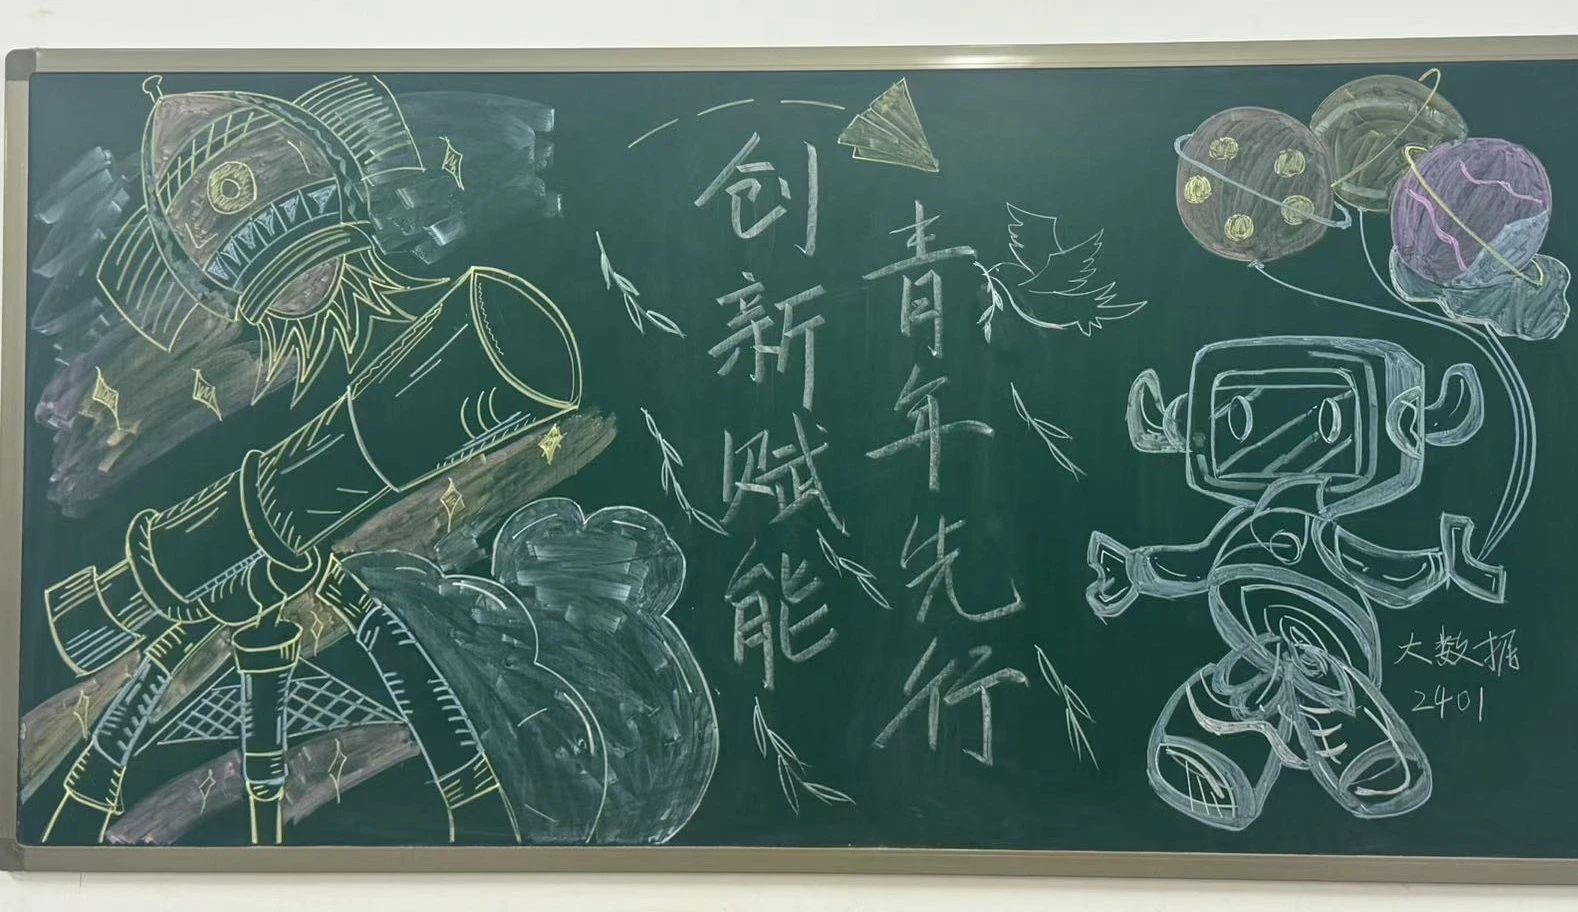 创新赋能
青年先行
大数据
2401